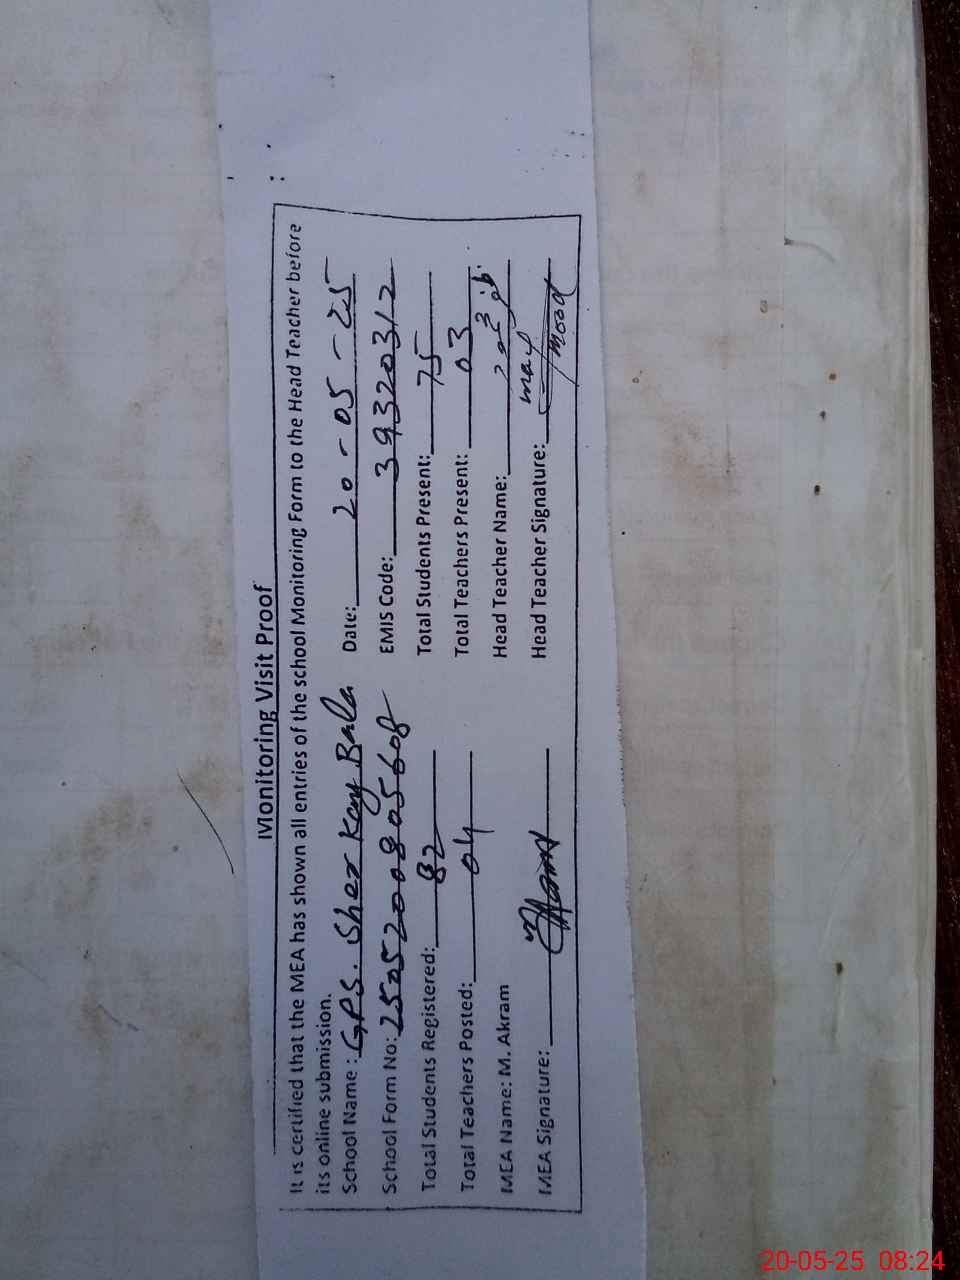 Monitoring Visit Proof
It is certified that the MEA has shown all entries of the school Monitoring Form to the Head Teacher before
its online submission.
School Name : GPS. Sher Kay Bala Date: 20-05-25
School Form No: EMIS Code: 39320312
Total Students Registered: 82 Total Students Present: 75
Total Teachers Posted: 04 Total Teachers Present: 03
MEA Name: M. Akram Head Teacher Name:
MEA Signature: Head Teacher Signature:
20-05-25 08:24